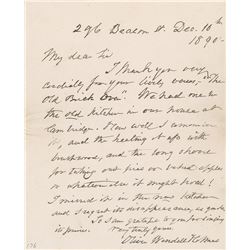 296 Beacon St. Dec. 10th
1890.
My dear Sir
I thank you very
cordially for your lively verses, "The
Old Brick Oven." We had one in
the old kitchen in our house at
Cambridge. How well I remember
it, and the heating it up with
brushwood, and the long shovel
for taking out pies or baked apples
or whatever else it might hold!
I missed it in the new kitchen
and regret its disappearance,
So I am grateful to you for singing
its praises. Very truly yours,
Oliver Wendell Holmes